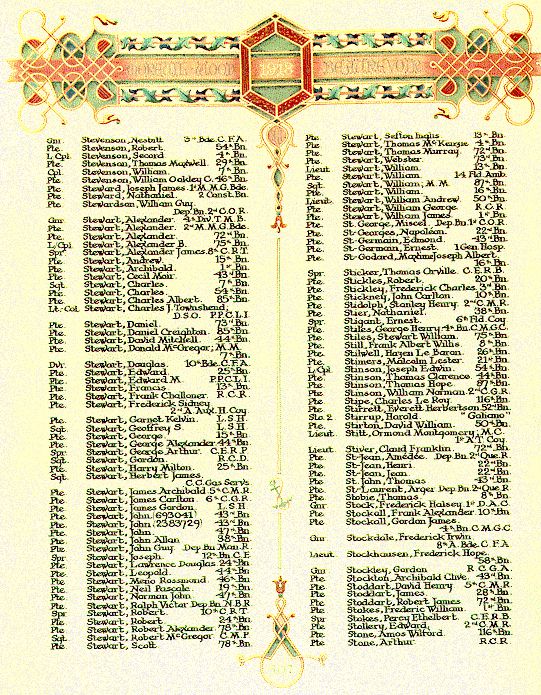 1918
Gnr Stevenson, Nesbitt 3rd Bde. C.F.A.
Pte. Stevenson, Robert 54th Bn.
L Cpl. Stevenson, Secord 4th Bn.
Pte. Stevenson, Thomas Maxwell 29th Bn.
Cpl. Stevenson, William 7th Bn.
Pte. Stevenson, William Oakley C. 46th Bn.
Pte. Steward, Joseph James 1st M.M.G. Bde.
Pte. Steward, Nathaniel 2 Const. Bn.
Pte. Stewardson, William Guy
Dep Bn. 2nd C.O.R.
Gnr Stewart, Alexander 4th Div. T.M.B.
Pte. Stewart, Alexander 2nd M.M.G. Bde.
Pte. Stewart, Alexander 72nd Bn.
L/Cpl. Stewart, Alexander B. 75th Bn.
Spr. Stewart, Alexander James 8th C.R.T.
Pte. Stewart, Andrew 15th Bn.
Pte. Stewart, Archibald 1st Bn.
Pte. Stewart, Cecil Moir 43rd Bn.
Sgt. Stewart, Charles 7th Bn.
Pte. Stewart, Charles 54th Bn.
Pte. Stewart, Charles Albert 85th Bn.
Lt.-Col. Stewart, Charles J. Townshend,
D.S.O. P.P.C.L.I.
Pte. Stewart, Daniel 73rd Bn.
Pte. Stewart, Daniel Creighton 85th Bn.
Pte. Stewart, David Mitchell 44th Bn.
Pte. Stewart, Donald McGregor, M.M.
7th Bn.
Dvr. Stewart, Douglas 10th Bde. C.F.A.
Pte. Stewart, Edward 25th Bn.
Pte. Stewart, Edward M. P.P.C.L.I.
Pte. Stewart, Francis 13th Bn.
Pte. Stewart, Frank Challoner R.C.R.
Pte. Stewart, Frederick Sidney
2nd A. Aux. H. Coy.
Pte. Stewart, Garnet Kelvin L.S.H.
Sgt. Stewart, Geoffrey S. L.S.H.
Pte. Stewart, George 15th Bn.
Pte. Stewart, George Alexander 44th Bn.
Spr. Stewart, George Arthur C.E.R.P.
Sgt. Stewart, Gordon R.C.D.
Pte. Stewart, Harry Milton 25th Bn.
Sgt. Stewart, Herbert James
C.C. Gas Serv's
Pte. Stewart, James Archibald 5th C.M.R.
Pte. Stewart, James Carlton 6th C.G.R.
Pte. Stewart, James Gordon L.S.H.
Pte. Stewart, John (693041) 43rd Bn.
Pte. Stewart, John (2383729) 43rd Bn.
Pte. Stewart, John 47th Bn.
Pte. Stewart, John Allan 38th Bn.
Pte. Stewart, John Guy Dep Bn. Man. R
Spr. Stewart, Joseph 12th Bn. C.E.
Pte. Stewart, Lawrence Douglas 24th Bn.
Pte. Stewart, Leopold 44th Bn.
Pte. Stewart, Meno Rossmond 46th Bn.
Pte. Stewart, Neil Pascale 19th Bn.
Pte. Stewart, Norman John 47th Bn.
Pte. Stewart, Ralph Victor Dep Bn. N.B.R
Spr. Stewart, Robert 10th C.R.T.
Pte. Stewart, Robert 24th Bn.
Pte. Stewart, Robert Alexander 78th Bn.
Sgt. Stewart, Robert McGregor C.M.P.
Pte. Stewart, Scott 78th Bn.
Pte. Stewart, Sefton Inglis 13th Bn.
Pte. Stewart, Thomas McKenzie 4th Bn.
Pte. Stewart, Thomas Murray 72nd Bn.
Pte. Stewart, Webster 73rd Bn.
Lieut Stewart, William 13th Bn.
Pte. Stewart, William 14 Fld. Amb.
Sgt. Stewart, William, M.M. 87th Bn.
Pte. Stewart, William 16th Bn.
Lieut Stewart, William Andrew 50th Bn.
Pte. Stewart, William George R.C.R.
Pte. Stewart, William James 1st Bn.
Pte. St. George, Miscel Dep Bn. 1st C.O.R.
Pte. St. Georges, Napoléon 22nd Bn.
Pte. St. Germain, Edmond 43rd Bn.
Pte. St. Germain, Ernest 1 Gen Hosp.
Pte. St-Godard, Maxime Joseph Albert
16th Bn.
Spr. Sticker, Thomas Orville C.E.R.B.
Pte. Stickles, Robert 20th Bn.
Pte. Stickley, Frederick Charles 3rd Bn.
Pte. Stickney, John Carlton 10th Bn.
Pte. Stidolph, Stanley Henry 2nd C.M.R.
Pte. Stier, Nathaniel 38th Bn.
Spr. Stigant, Ernest 6th Fld. Coy
Pte. Stilks, George Henry 4th Bn. C.M.G.C.
Pte. Stiles, Stewart William 75th Bn.
Pte. Still, Frank Albert Willis 8th Bn.
Pte. Stilwell, Hazen Le Baron 26th Bn.
Pte. Stimers, Malcolm Lester 21st Bn.
L Cpl. Stinson, Joseph Edwin 54th Bn.
Pte. Stinson, Thomas Clarence 44th Bn.
Pte. Stinson, Thomas Hope 87th Bn.
Pte. Stinson, William Norman 2nd C.G.R.
Pte. Stipe, Charles Le Roy 116th Bn.
Pte. Stirrett, Everett Herbertson 52nd Bn.
Sto. 2 Stirrup, Harold "Galiano"
Pte. Stirton, David William 50th Bn.
Lieut. Stitt, Ormond Montgomery, M.C.
1st A.T. Coy.
Lieut Stiver, Claud Franklin 72nd Bn.
Pte. St-Jean, Amédée Dep. Bn. 2nd Que. R
Pte. St-Jean, Henri 22nd Bn.
Pte. St-Jean, Jean 22nd Bn.
Pte. St. John, Thomas 43rd Bn.
Pte. St-Laurent, Arger Dep Bn. 2nd Que. R.
Pte. Stobie, Thomas 8th Bn.
Gnr Stock, Frederick Halsey 1st D.A.C.
Pte. Stockall, Frank Alexander 10th Bn.
Pte. Stockall, Gordon James
4th Bn. C.M.G.C.
Gnr Stockdale, Frederick Irwin
8th A. Bde. C.F.A
Lieut. Stockhausen, Frederick Hope
58th Bn.
Gnr Stockley, Gordon R.C.G.A.
Pte. Stockton, Archibald Clive 43rd Bn.
Pte. Stoddart, David Henry 5th C.M.R.
Pte. Stoddart, James 28th Bn.
Pte. Stoddart, Robert James 72nd Bn.
Pte. Stokes, Frederic William 1st Bn.
Spr. Stokes, Percy Ethelbert C.E.R.B.
Pte. Stollery, Edward 2nd C.M.R.
Pte. Stone, Amos Wilford 116th Bn.
Pte. Stone, Arthur R.C.R.